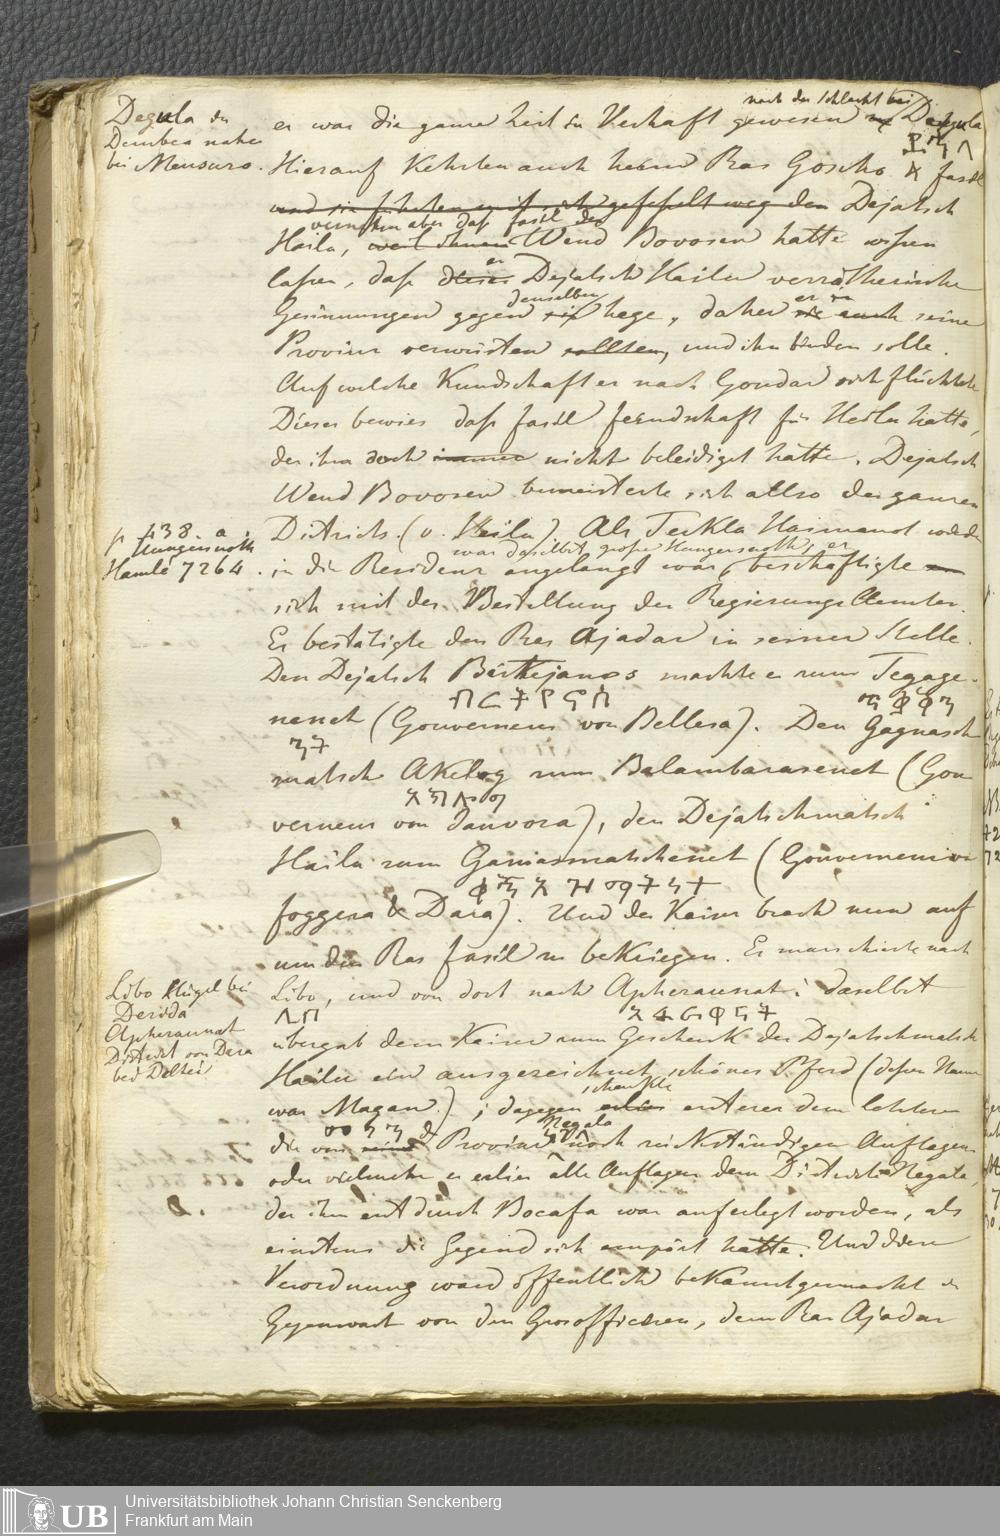 Degula in
Dembea nahe
bei Mensuro.
nach der Schlacht bei
er war die ganze Zeit in Verhaft gewesen Degula
Hierauf kehrten auch heim Ras Goscho & Fasil
und sie gefeselt weg den Dejatsch
vernahm aber daß Fasil den
Haila, weil ihnen Wend Bovosen hatte wissen
lassen, daß dieser er Dejatsch Hailu verrätherische
denselben
Gesinnungen gegen sie hege, daher sie auch seine
Provinz verwüsten sollten, und ihn binden solle.
Auf welche Kundschaft er nach Gondar sich flüchtete
Dieses bewies daß Fasil feindschaft für Heilu hatte,
der ihn doch immer nicht beleidiget hatte. Dejatsch
Wend Bovosen bemeisterte sich allso der ganzen
p 438. a
Hungersnoth
Hamlé 7264.
Districts. (v. Heilu). Als Teckla Haimanot wieder
war daselbst große Hungersnoth; er
in die Residenz angelangt war, beschäftigte
sich mit der Bestellung der Regierungs Aemter.
Er bestätigte den Ras Ajadar in seiner Stelle.
Den Dejatsch Bertkejanos machte er zum Tegage-
በርትያኖስ
nenet (Gouverneur von Bellesa). Den Gagnasch
matsch Akelog zum Balambarasenet (Gou
verneur von Janvora), den Dejatschmatsch
Haila zum Ganiasmatschenet (Gouverneur von
Foggera & Dara). Und der Kaiser brach nun auf
um den Ras Fasil zu bekriegen. Er marschierte nach
Libo Hügel bei
Derida
Apheraunat
District von Dara
bei Deltei
Libo, und von dort nach Apheraunat; daselbst
ሊቦ
übergab dem Kaiser zum Geschenk der Dejatschmatsch
Hailu ein ausgezeichnet schönes Pferd (dessen Name
schenkte
war Magan.); dagegen erlies ersterer dem letztern
Negala
die von einer Provinz noch rückständigen Auflagen
oder vielmehr er erlies alle Auflagen dem District Negala,
der ihm erst durch Bocafa war auferlegt worden, als
einstens die Gegend sich empört hatte. Und diese
Verordnung ward öffentlich bekanntgemacht in
Gegenwart von den Grosofficieren, dem Ras Ajadar
UB
Universitätsbibliothek Johann Christian Senckenberg
Frankfurt am Main